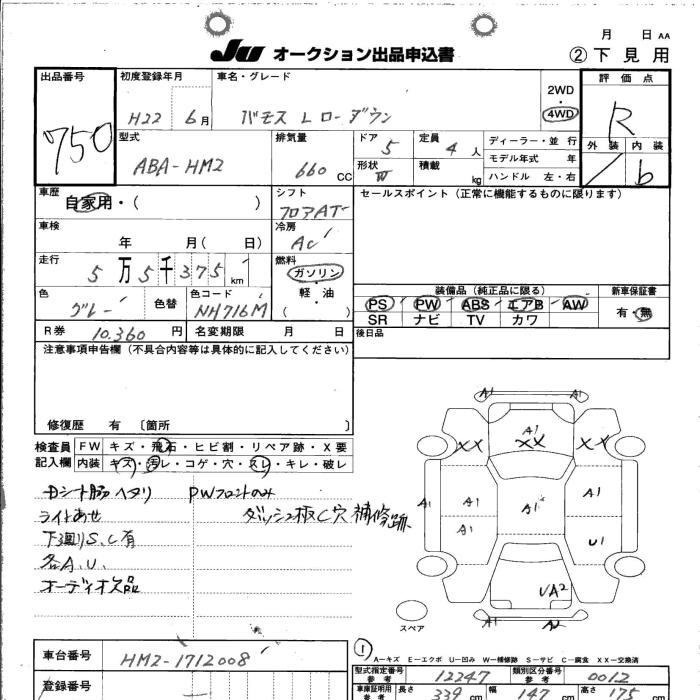 月 日 AA
JU オークション出品申込書 ②下見用
出品番号 初度登録年月 車名・グレード 2WD・4WD 評価点
750 H22 6月 バモス L ローダウン R
型式 排気量 ドア 定員 ディーラー・並行 外装 内装
ABA-HM2 660 CC 5 4人 モデル年式 年 b
形状 積載 kg ハンドル 左・右
車歴 シフト セールスポイント（正常に機能するものに限ります）
自家用・（ ） フロアAT
車検 冷房
年 月（ 日） AC
走行 燃料
5万5千375km ガソリン・軽・油
装備品（純正品に限る） 新車保証書
色 色替 色コード （ ） PS PW ABS エアB AW 有・無
グレー NH716M SR ナビ TV カワ
R券 10.360円 名変期限 月 日 後日品
注意事項申告欄（不具合内容等は具体的に記入してください）
修復歴 有 〔箇所 〕
検査員 FW キズ・飛石・ヒビ割・リペア跡・X要
記入欄 内装 キズ・汚レ・コゲ・穴・スレ・キレ・破レ
Dシート脇ヘタリ PWフロントのみ
ライトあせ ダッシュ板C穴補修跡
下廻りS.C有
各A.U.
オーディオ欠品
A1 A1
A1
XX XX XX
A1 A1 A1 A1
A1 U1
UA2
A1 A2
スペア
車台番号 HM2-1712008
登録番号
①
A－キズ E－エクボ U－凹み W－補修跡 S－サビ C－腐食 XX－交換済
型式指定番号 参考 12247 類別区分番号 参考 0012
車庫証明用 参考 長さ 339 cm 幅 147 cm 高さ 175 cm